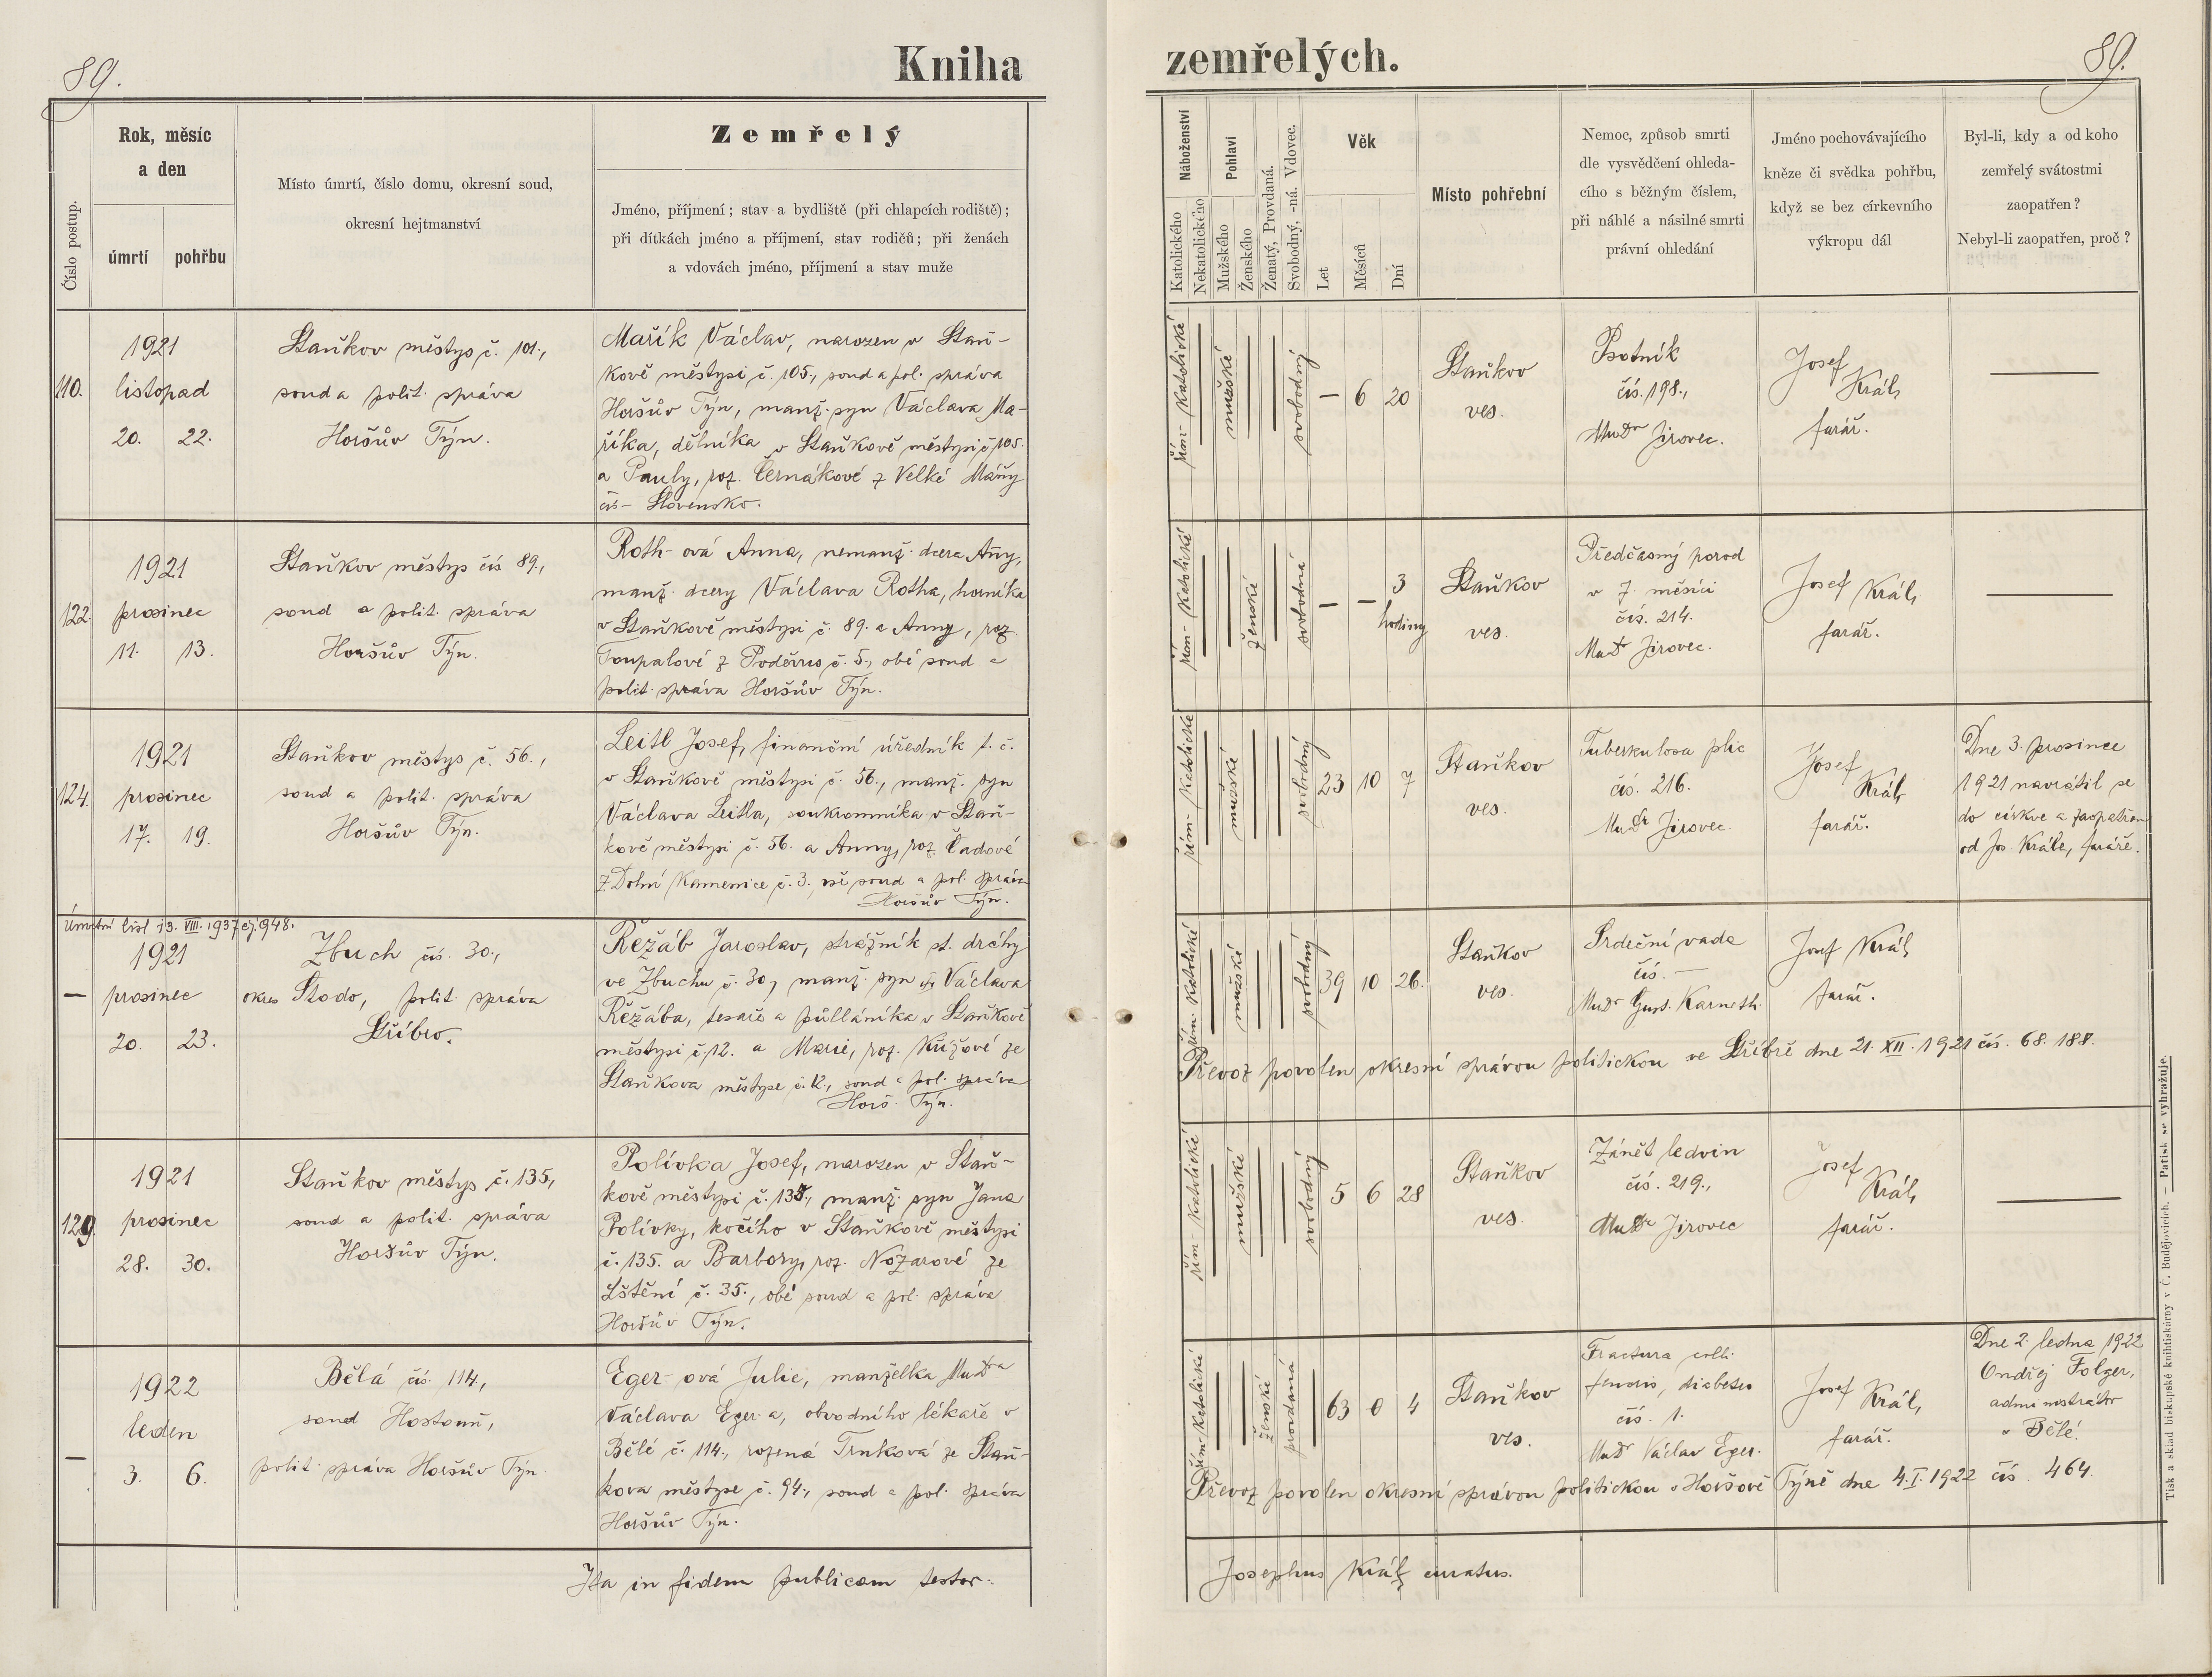 89.
Kniha
zemřelých.
89.
Číslo postup.
Rok, měsíc
a den
úmrtí
pohřbu
Místo úmrtí, číslo domu, okresní soud,
okresní hejtmanství
Zemřelý
Jméno, příjmení; stav a bydliště (při chlapcích rodiště);
při dítkách jméno a příjmení, stav rodičů; při ženách
a vdovách jméno, příjmení a stav muže
Náboženství
Katolického
Nekatolického
Pohlaví
Mužského
Ženského
Ženatý, Provdaná.
Svobodný, -ná. Vdovec.
Věk
Let
Měsíců
Dní
Místo pohřební
Nemoc, způsob smrti
dle vysvědčení ohleda-
cího s běžným číslem,
při náhlé a násilné smrti
právní ohledání
Jméno pochovávajícího
kněze či svědka pohřbu,
když se bez církevního
výkropu dál
Byl-li, kdy a od koho
zemřelý svátostmi
zaopatřen?
Nebyl-li zaopatřen, proč?
110.
1921
listopad
20. 22.
Staňkov městys č. 101.,
soud a polit. správa
Horšův Týn.
Mařík Václav, narozen v Staň-
kově městysi č. 105., soud a pol. správa
Horšův Týn, manž. syn Václava Ma-
říka, dělníka v Staňkově městysi č. 105.
a Pauly, roz. Černákové z Velké Máňy
čís – Slovensko.
řím- katolické
mužské
svobodný
— 6 20
Staňkov
ves.
Psotník
čís. 198.,
MuDr Jirovec.
Josef
Král,
farář.
—
122.
1921
prosinec
11. 13.
Staňkov městys čís 89.,
soud a polit. správa
Horšův Týn.
Roth- ová Anna, nemanž. dcera Aňy,
manž. dcery Václava Rotha, horníka
v Staňkově městysi č. 89. a Anny, roz.
Toupalové z Poděvus č. 5., obé soud a
polit. správa Horšův Týn.
řím- katolické
ženské
svobodná
— — 3
hodiny
Staňkov
ves.
Předčasný porod
v 7. měsíci
čís. 214.
MuDr Jirovec.
Josef Král,
farář.
—
124.
1921
prosinec
17. 19.
Staňkov městys č. 56.,
soud a polit. správa
Horšův Týn.
Leitl Josef, finanční úředník t. č.
v Staňkově městysi č. 56., manž. syn
Václava Leitla, soukromníka v Staň-
kově městysi č. 56. a Anny, roz. Čadové
z Dolní Kamenice č. 3. vše soud a pol. správa
Horšův Týn.
řím- katolické
mužské
svobodný
23 10 7
Staňkov
ves.
Tuberkulosa plic
čís. 216.
MuDr Jirovec.
Josef
Král,
farář.
Dne 3. prosince
1921 navrátil se
do církve a zaopatřen
od Jos. Krále, faráře.
Úmrtní list 13. VIII. 1937 čj. 948.
—
1921
prosinec
20. 23.
Zbuch čís. 30.,
okres Stodo, polit. správa
Stříbro.
Řežáb Jaroslav, strážník st. dráhy
ve Zbuchu č. 30, manž. syn Václava
Řežába, tesaře a půlláníka v Staňkově
městysi č. 12. a Marie, roz. Křížové ze
Staňkova městyse č. 12., soud a pol. správa
Horš. Týn.
řím- katolické
mužské
svobodný
39 10 26.
Staňkov
ves.
Srdeční vada
čís. —
MuDr Gust. Karneth.
Josef Král,
farář.
Převoz povolen okresní správou politickou ve Stříbře dne 21. XII. 1921 čís. 68.188.
129.
1921
prosinec
28. 30.
Staňkov městys č. 135,
soud a polit. správa
Horšův Týn.
Polívka Josef, narozen v Staň-
kově městysi č. 135., manž. syn Jana
Polívky, kočího v Staňkově městysi
č. 135. a Barbory, roz. Nózarové ze
Lštění č. 35., obé soud a pol. správa
Horšův Týn.
řím- katolické
mužské
svobodný
5 6 28
Staňkov
ves.
Zánět ledvin
čís. 219.,
MuDr Jirovec
Josef
Král,
farář.
—
—
1922
leden
3. 6.
Bělá čís. 114.,
soud Hostouň,
polit. správa Horšův Týn.
Eger- ová Julie, manželka MuDra
Václava Eger-a, obvodního lékaře v
Bělé č. 114., rozená Trnková ze Staň-
kova městyse č. 94., soud a pol. správa
Horšův Týn.
řím- katolické
ženské
provdaná
63 0 4
Staňkov
ves.
Fractura colli
femoris, diabetes
čís. 1.
MuDr Václav Eger.
Josef Král,
farář.
Dne 2. ledna 1922
Ondřej Folger,
administrátor
v Bělé.
Převoz povolen okresní správou politickou v Horšově Týně dne 4. I. 1922 čís. 464.
Ita in fidem publicam testor:
Josephus Král, curatus.
Tisk a sklad biskupské knihtiskárny v Č. Budějovicích. — Patisk se vyhražuje.